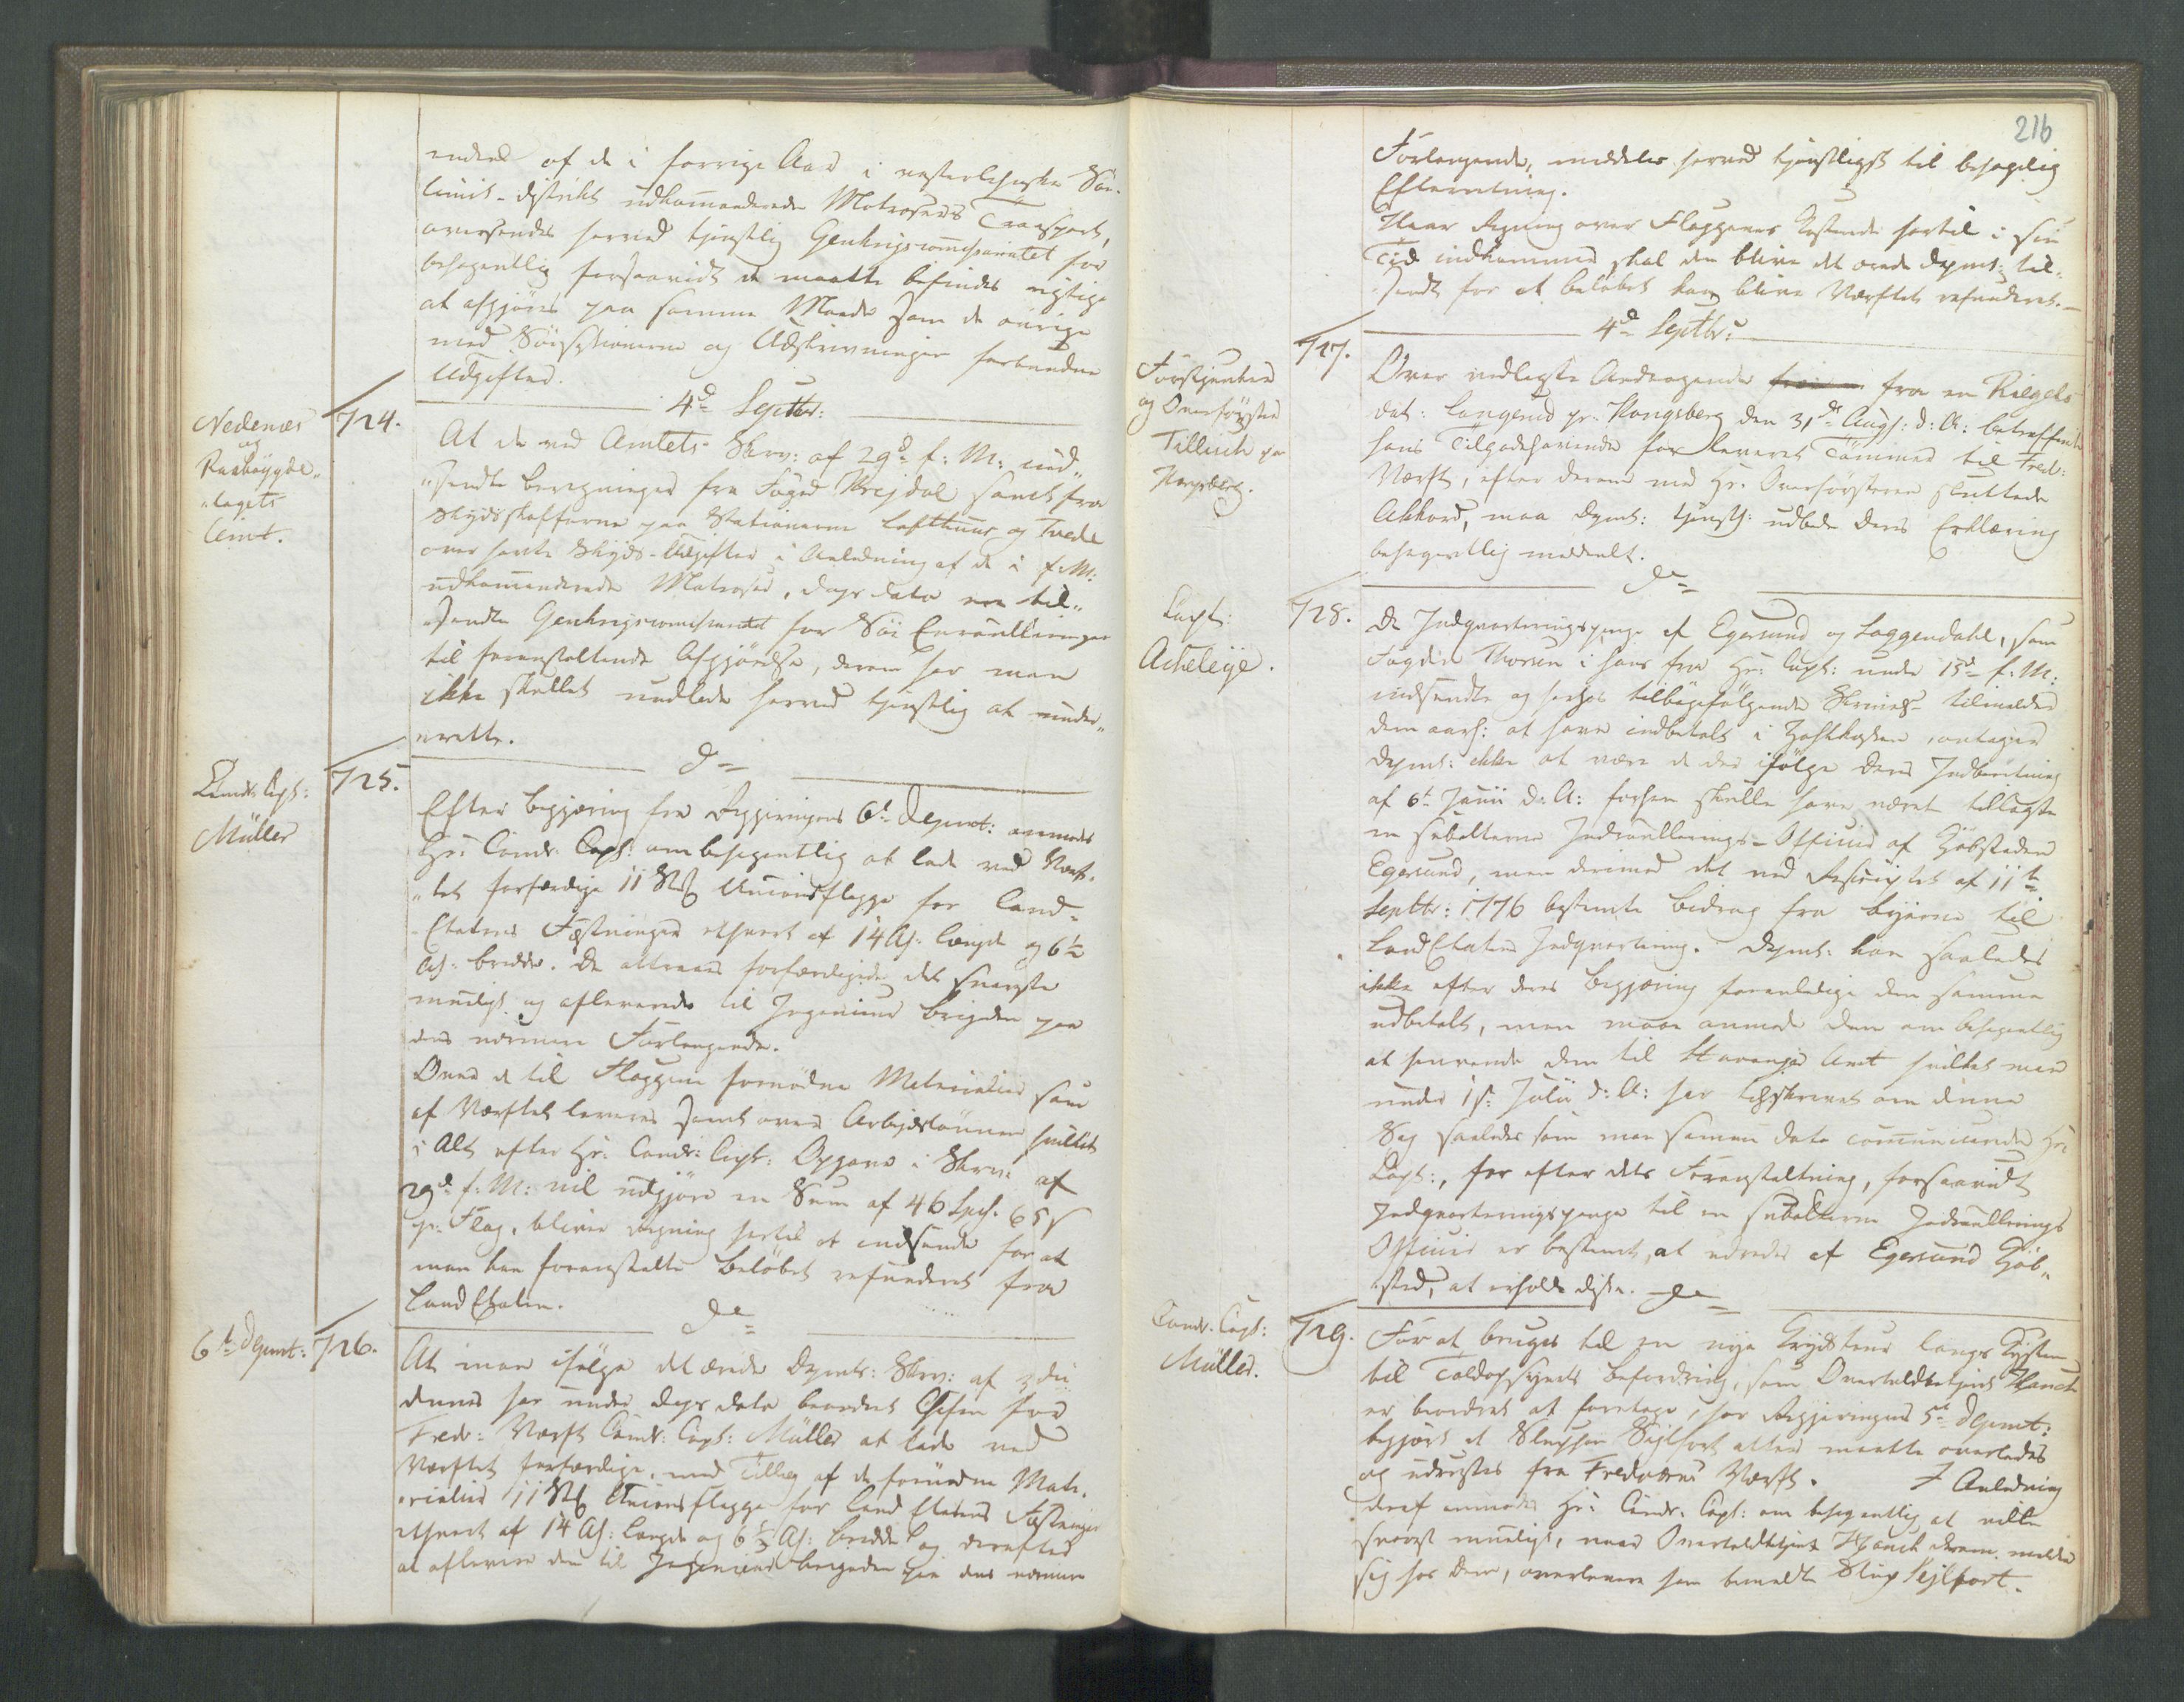 endeel af de i forrige Aar i vesterlehnske Søe-
limits-distrikt udkommanderede Matrosers Transport,
oversendes herved tjenstlig Genkrigscommissariatet for
behageligen forsaavidt de maatte befindes rigtige
at afgjøres paa samme Maade som de øvrige
med Søesessionerne og Udskrivningen forbundne
Udgifter.
4de Septbr:
Nedenæs
og
Raabøygde-
lagets
Amt.
724.
At de ved Amtets Skriv: af 29de f: M: ind-
sendte Beregninger fra Foged Krejdal samt fra
Skydsskafferne paa Stationerne Lofthuus og Tvede
over havte Skyds-Udgifter i Anledning af de i f: M:
udkommanderede Matroser, dags dato ere til-
sendte Genkrigscommissariatet for Søe Enroulleringen
til foranstaltende Afgjørelse, derom har man
ikke skullet undlade herved tjenstlig at under-
rette.
do
Comdr. Capt:
Müller
725.
Efter Begjæring fra Regjeringens 6te Depmt: anmodes
Hr: Comdr. Capt: om behagentlig at lade ved Værf-
tet forfærdige 11 Stk Unionsflagge for Land-
Etatens Fæstninger ethvert af 14 Al: Længde og 6½
Al: Bredde. De attraaes forfærdigede det snareste
muligt og afleverede til Ingenieur Brigaden paa
dens nærmere Forlangende.
Over de til Flaggene fornødne Materialier som
af Værftet leveres samt over Arbejdslønnen hvilket
i Alt efter Hr: Comdr: Capt: Opgave i Skriv: af
29de f: M: vil udgjøre en Sum af 46 Spd. 65 s
pr. Flag, bliver Regning hertil at indsende for at
man kan foranstalte Beløbet refunderet fra
Land Etaten.
do
6te Depmt:
726.
At man ifølge det ærede Depmts: Skriv: af 3die
dennes har under dags dato beordret Chefen for
Fredr: Værft Comdr: Capt: Müller at lade ved
Værftet forfærdige, med Tillæg af de fornødne Mate-
rialier 11 Stk Unionsflagge for Land Etatens Fæstninger
ethvert af 14 Al: Længde og 6½ Al: Bredde og derefter
at aflevere dem til Ingenieur Brigaden paa dens nærmere
216
Forlangende, meddeles herved tjenstligst til behagelig
Efterretning.
Naar Regning over Flaggenes Kostende hertil i sin
Tid indkommer skal den blive det ærede Depmt: til-
sendt for at Beløbet kan blive Værftet refunderet.
4de Septbr:
Forstjunker
og Overførster
Tillisch paa
Kongsberg.
727.
Over vedlagte Andragende fra en Rielgels
dat: Langerud pr. Kongsberg den 31de Aug: d: A: betreffende
hans Tilgodehavende for leveret Tømmer til Fred:
Værft, efter derom med Hr. Overførsteren sluttede
Akkord, maa Depmt: tjenstl: udbede Deres Erklæring
behagentlig meddeelt.
do
Capt:
Acheleÿe.
728.
De Indqvarteringspenge af Egersund og Soggendahl, som
Fogden Thorsen i hans fra Hr: Capt: under 15de f: M:
indsendte og herhos tilbagefølgende Skrivelse tilmelder
Dem aarl: at have indbetalt i Zahlkassen, antager
Depmt: ikke at være de der ifølge Deres Indberetning
af 6te Junii d: A: forhen skulle have været tillagte
en subaltern Indroullerings-Officier af Kjøbstaden
Egersund, men derimod det ved Rescriptet af 11te
Septbr: 1776 bestemte Bidrag fra Byerne til
Land Etatens Indqvartering. Depmt: kan saaledes
ikke efter Deres Begjæring foranledige den samme
udbetalt, men maae anmode Dem om behagentlig
at henvende Dem til Stavanger Amt hvilket man
under 1ste Julii d: A: har tilskrevet om denne
Sag saaledes som man samme Dato communicerede Hr:
Capt:, for efter dets Foranstaltning, forsaavidt
Indqvarteringspenge til en subaltern Indroullerings
Officier er bestemt, at udredes af Egersund Kjøb-
sted, at erholde disse.
do
Comdr. Capt:
Müller.
729.
For at bruges til en nye Krydstour langs Kysten
til Toldopsynets Befordring, som Overtoldbetjent Hanch
er beordret at foretage, har Regjeringens 5te Depmt:
begjært at Sluppen Sejlfort atter maatte overlades
og udrustes fra Fredværns Værft. I Anledning
deraf anmodes Hr: Comdr. Capt: om behagentlig at ville
snarest muligt, naar Overtoldbetjent Hanch derom melder
sig hos Dem, overlevere ham bemeldte Slup Sejlfort.